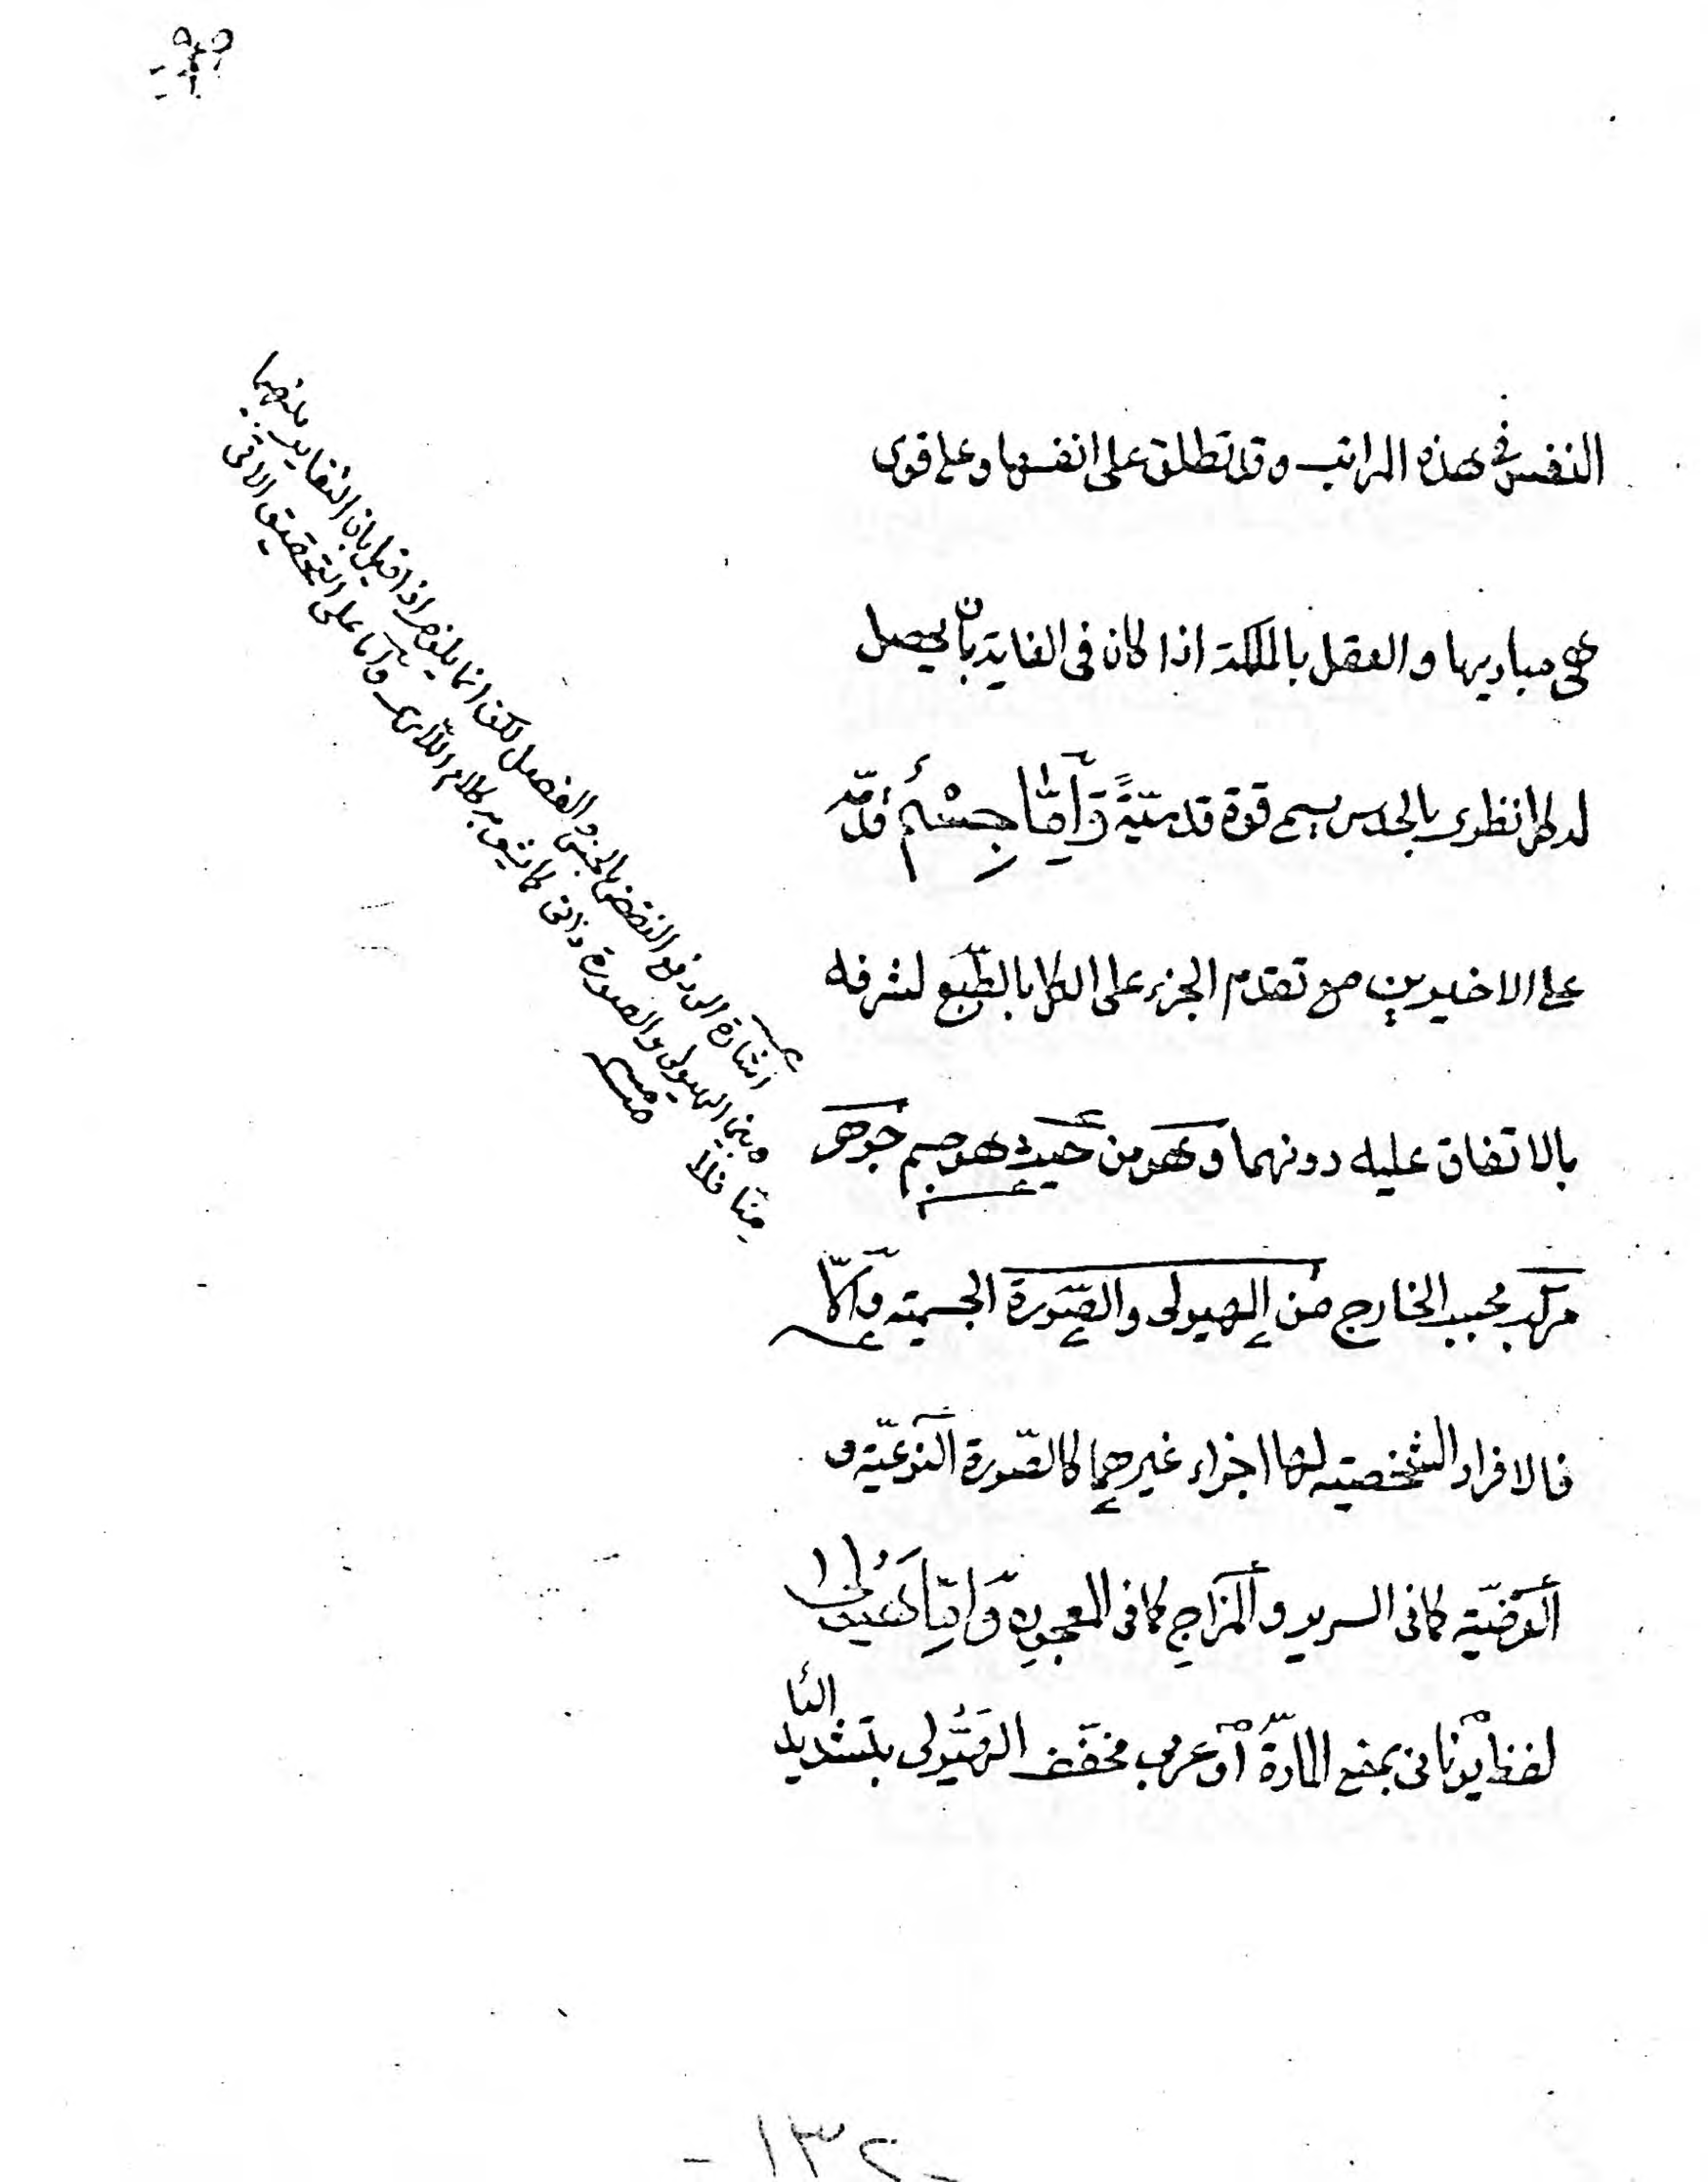 النفس في هذه المراتب وقد تطلق على انفسها وعلى قوى
هي مباديها والعقل بالملكة اذا كان في الغاية بان يحصل
له كل نظرى بالحدس يسمى قوة قدسيّةً وَاِمَّا جِسْمٌ قدّمه
على الاخيرين مع تقدم الجزء على الكل بالطّبع لشرفه
بالاتفاق عليه دونهما وهو من حيث هو جسم جَوهر
مركب بحسب الخارج من الهيولى والصّورة الجسمية والّا
فالافراد الشخصية لها اجزاء غيرهما كالصّورة النّوعيّة و
العرضيّة كما في السرير والمزاج كما في المعجون وَاِمَّا هَيُولٰى
لفظ يونانى بمعنى المادّة او عربى مخفّف الهَيُّولى بتشديد
اليا
اشارة الى دفع النقض بالجنس والفصل لكن انما يلزم اذا قيل بان التغاير بينهما
وبين الهيولى والصورة ذاتى كما يشعر به كلام اللارى وامّا على التحقيق الاتى
منّا فلا
منه
- ١٣٢ -